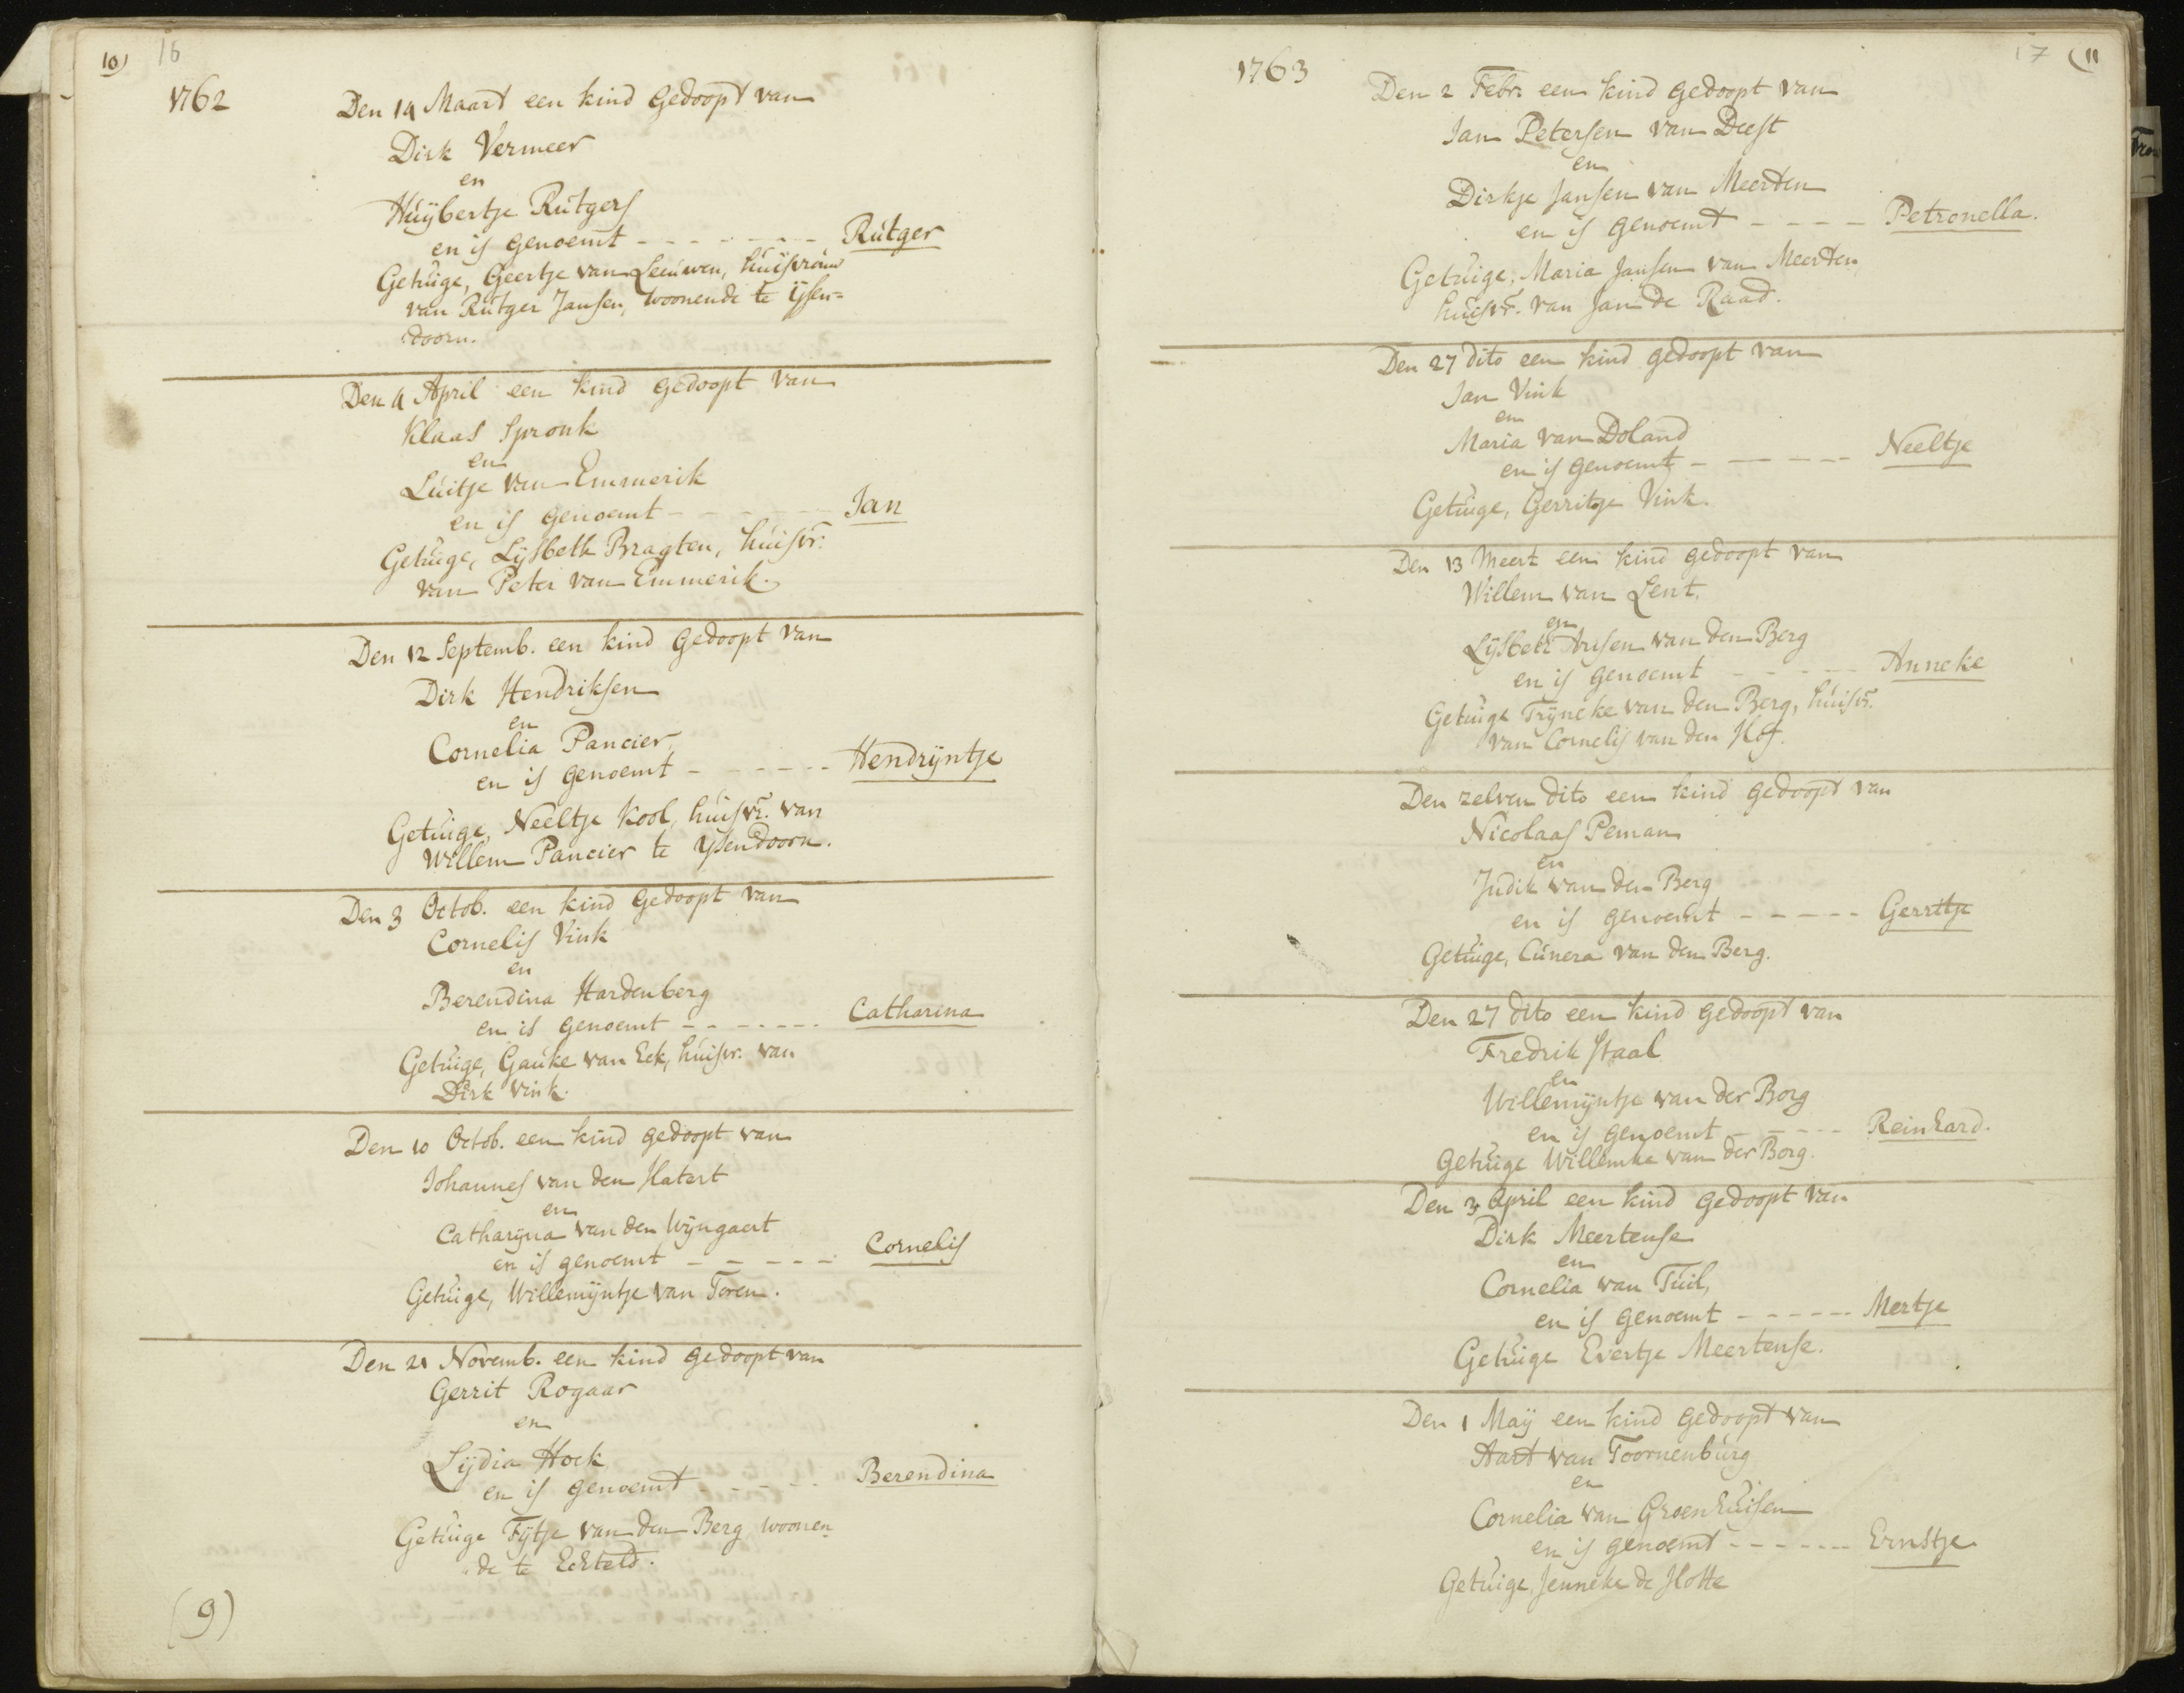 10) 16
1762
Den 14 Maart een kind gedoopt van
Dirk Vermeer
en
Huÿbertje Rutgers
en is genoemt - - - - - - - Rutger
Getuige, Geertje van Leeuwen, huisvrouw
van Rutger Jansen, woonende te ÿsen=
doorn.
Den 4 April een kind gedoopt van
Klaas Spronk
en
Luitje van Emmerik
en is genoemt - - - - - - Jan
Getuige, Lijsbeth Bragten, huisvr:
van Peter van Emmerik.
Den 12 Septemb. een kind gedoopt van
Dirk Hendriksen
en
Cornelia Pancier
en is genoemt - - - - - - Hendrÿntje
Getuige, Neeltje Kool, huisvr. van
Willem Pancier te ÿsendoorn.
Den 3 Octob. een kind gedoopt van
Cornelis Vink
en
Berendina Hardenberg
en is genoemt - - - - - - - Catharina
Getuige, Gauke van Eck, huisvr. van
Dirk Vink.
Den 10 Octob. een kind gedoopt van
Johannes van den Hatert
en
Catharÿna van den Wÿngaert
en is genoemt - - - - - Cornelis
Getuige, Willemÿntje van Toren.
Den 21 Novemb. een kind gedoopt van
Gerrit Rogaar
en
Lÿdia Hoek
en is genoemt - - - - - Berendina
Getuige Fÿtje van den Berg woonen
de te Echteld.
(9)
17 (11
1763
Den 2 Febr. een kind gedoopt van
Jan Petersen van Deest
en
Dirkje Jansen van Meerten
en is genoemt - - - - - Petronella.
Getuige, Maria Jansen van Meerten,
huisvr. van Jan de Raad.
Den 27 dito een kind gedoopt van
Jan Vink
en
Maria van Doland
en is genoemt - - - - - - Neeltje
Getuige, Gerritje Vink.
Den 13 Meert een kind gedoopt van
Willem van Lent.
en
Lÿsbeth Ansen van den Berg
en is genoemt - - - - - Anneke
Getuige Trÿneke van den Berg, huisvr.
van Cornelis van den Hof.
Den zelven dito een kind gedoopt van
Nicolaas Peman
en
Judik van den Berg
en is genoemt - - - - - Gerritje
Getuige, Cunera van den Berg.
Den 27 dito een kind gedoopt van
Fredrik Staal
en
Willemÿntje van der Borg
en is genoemt - - - - - Reinhard.
Getuige Willemke van der Borg.
Den 3 April een kind gedoopt van
Dirk Meertense
en
Cornelia van Tuil,
en is genoemt - - - - - - Mertje
Getuige Evertje Meertense.
Den 1 Maÿ een kind gedoopt van
Aart van Toornenburg
en
Cornelia van Groenhuisen
en is genoemt - - - - - - - Ernstje
Getuige, Jenneke de Hotte